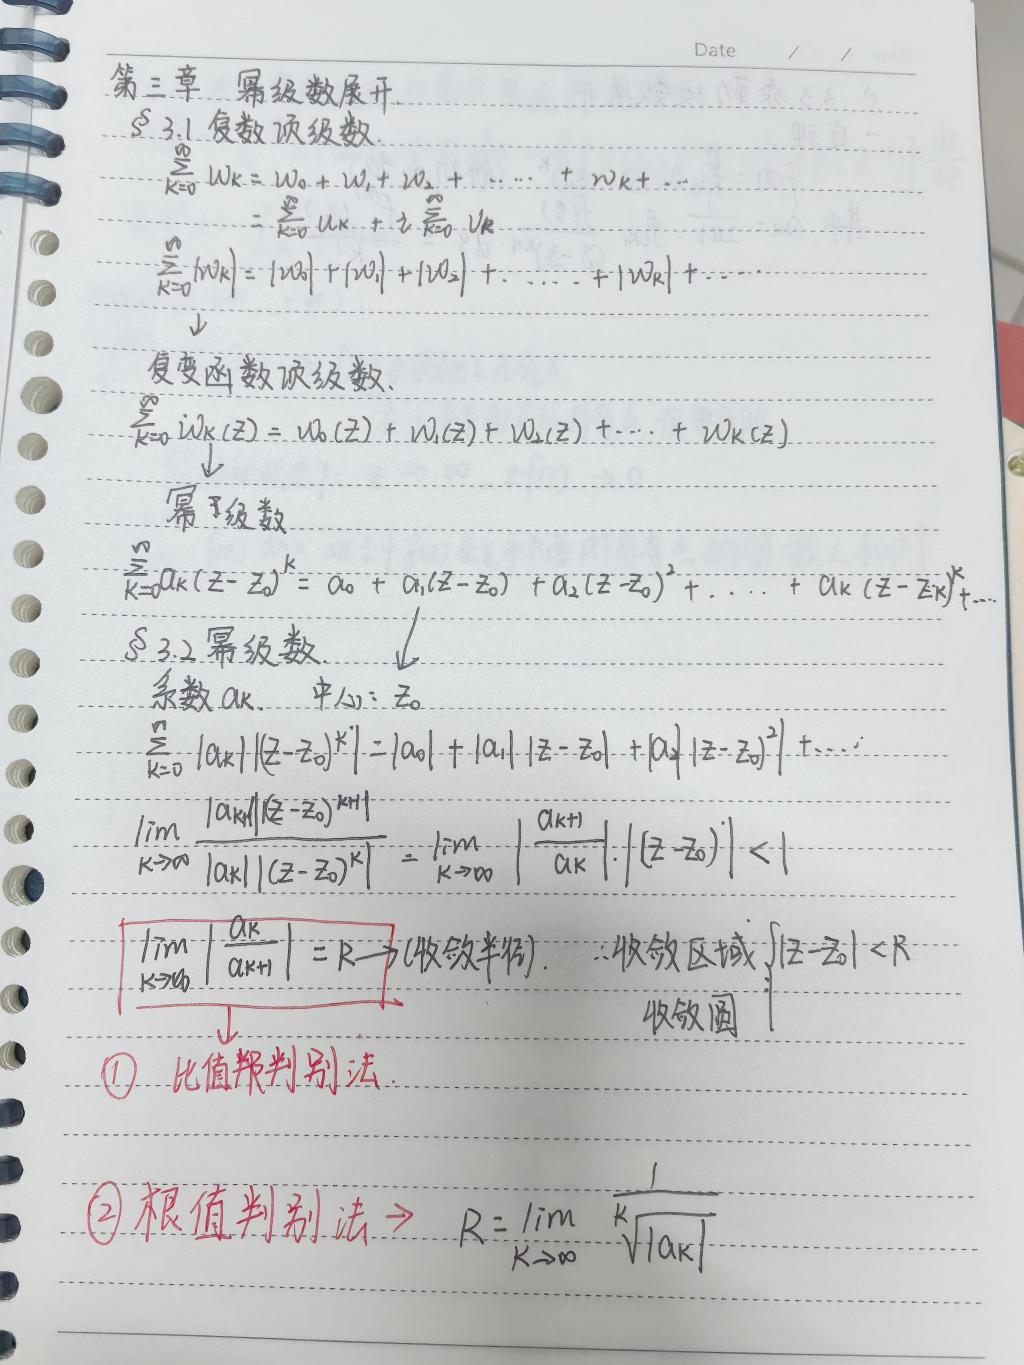 Date / /
第三章 幂级数展开.
§ 3.1 复数项级数.
∑_{k=0}^{∞} w_k = w_0 + w_1 + w_2 + ······ + w_k + ···
= ∑_{k=0}^{∞} u_k + i ∑_{k=0}^{∞} v_k
∑_{k=0}^{∞} |w_k| = |w_0| + |w_1| + |w_2| + ······ + |w_k| + ·····
↓
复变函数项级数.
∑_{k=0}^{∞} w_k(z) = w_0(z) + w_1(z) + w_2(z) + ···· + w_k(z)
↓
幂级数
∑_{k=0}^{∞} a_k(z-z_0)^k = a_0 + a_1(z-z_0) + a_2(z-z_0)^2 + ····· + a_k(z-z_k)^k + ····
§ 3.2 幂级数.
系数 a_k. 中心: z_0
∑_{k=0}^{∞} |a_k| |(z-z_0)^k| = |a_0| + |a_1| |z-z_0| + |a_2| |z-z_0)^2| + ·····
lim_{k→∞} \frac{|a_{k+1}| |(z-z_0)^{k+1}|}{|a_k| |(z-z_0)^k|} = lim_{k→∞} |\frac{a_{k+1}}{a_k}| · |(z-z_0)| < 1
lim_{k→∞} |\frac{a_k}{a_{k+1}}| = R → (收敛半径). ∴ 收敛区域 { |z-z_0| < R
收敛圆
↓
① 比值判别法.
② 根值判别法 → R = lim_{k→∞} \frac{1}{\sqrt[k]{|a_k|}}